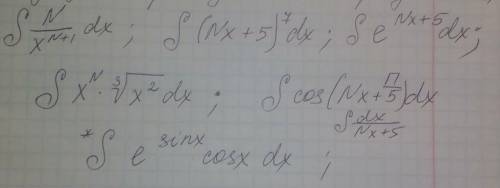 ∫ N/x^(N+1) dx ; ∫ (Nx+5)^7 dx ; ∫ e^(Nx+5) dx ;
∫ x^N · ∛(x²) dx ; ∫ cos(Nx + П/5) dx
∫ dx/(Nx+5)
* ∫ e^(sinx) cosx dx ;